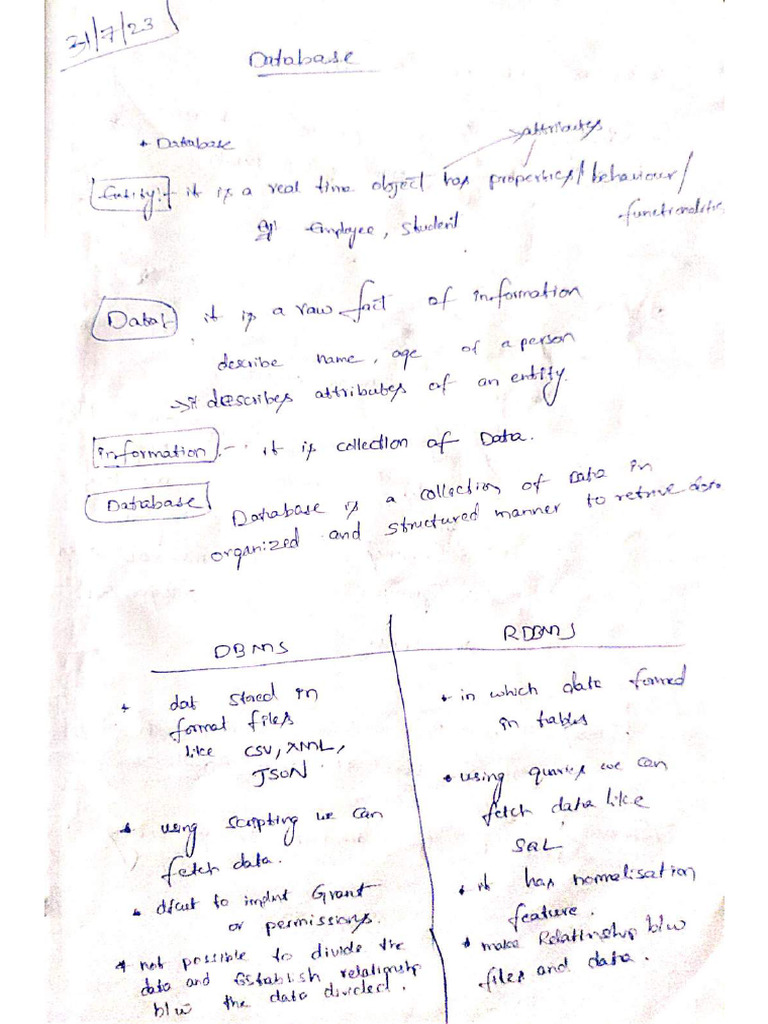 31/7/23
Database
+ Database
attributes
Entity:- it is a real time object has properties/behaviour/
functionalitie
Eg Employee, Student
Data:- it is a raw fact of information
describe name, age of a person
→ it describes attributes of an entity.
information :- it is collection of Data.
Database Database is a collection of Data in
organized and structured manner to retrive data
DBMS
RDBMS
+ dat stored in
format files
like CSV, XML,
JSON
• using scripting we can
fetch data.
• dficut to implnt Grant
or permissions.
* not possible to divide the
data and Establish relationship
b/w the data divided.
+ in which data formed
in tables
• using queries we can
fetch data like
SQL
• it has normalisation
feature.
• make Relatinship b/w
files and data.